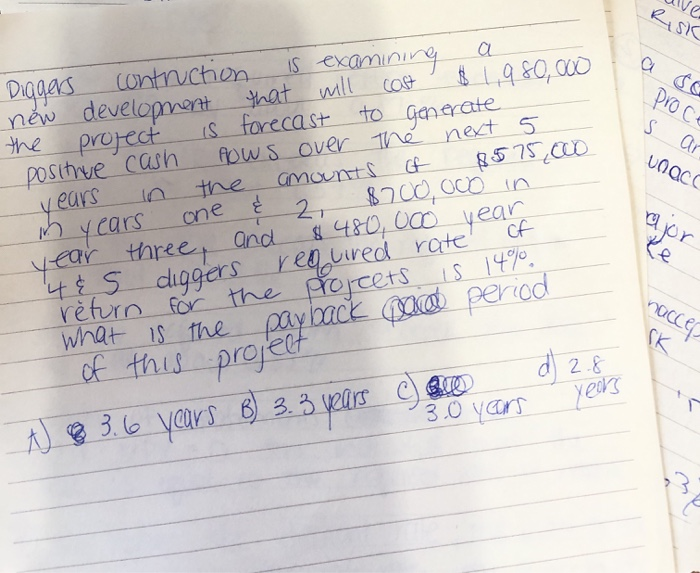 Diggers contruction is examining a
new development that will cost $ 1,980,000
the project is forecast to generate
positive cash flows over the next 5
years in the amounts of $575,000
in years one & 2, $700,000 in
year three, and $ 480,000 year
4 & 5 diggers required rate of
return for the projects is 14%.
what is the payback period
of this project
A) 3.6 years B) 3.3 years C) 3.0 years d) 2.8 years
Risk
a
proc
s
unacc
ajor